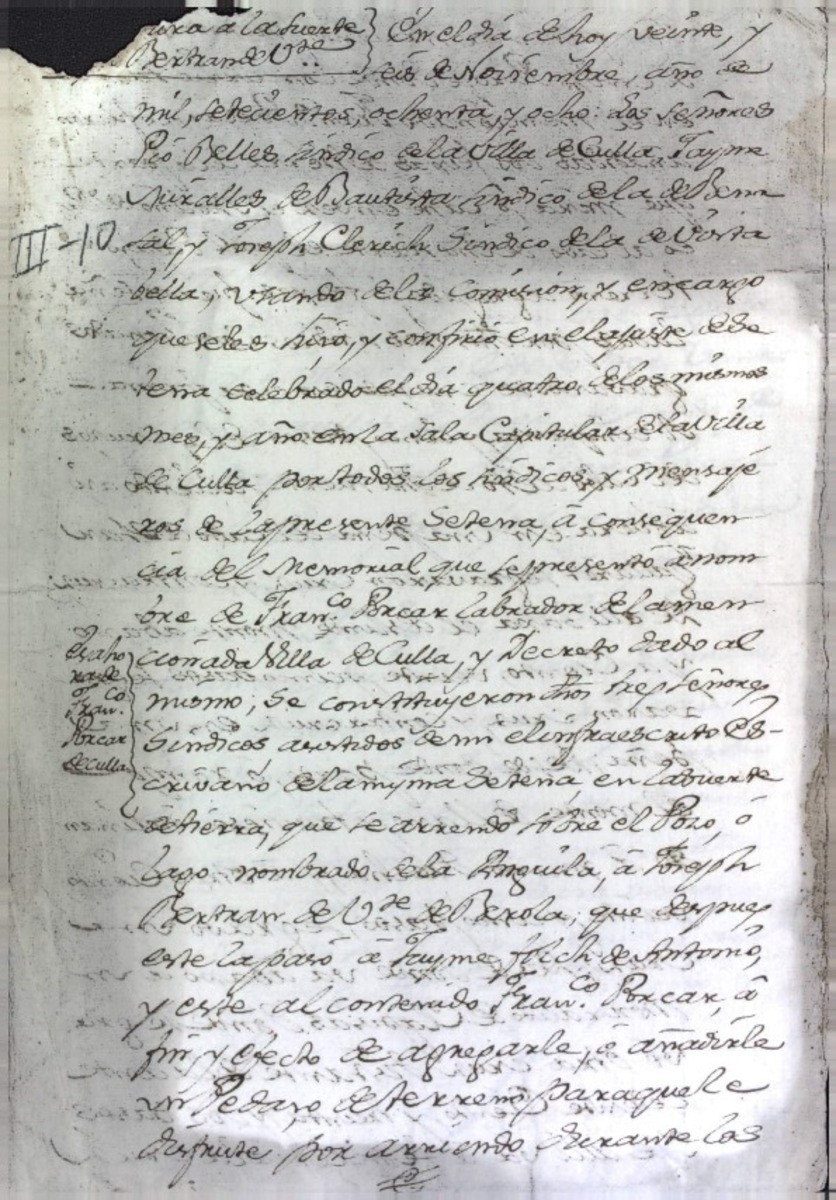 ura a la suerte
Bertran de V.te
En el dia de hoy veinte, y
seis de Noviembre, año de
mil, setecientos, ochenta, y ocho: los señores
Pio Belles sindico de la Villa de Culla, Jayme
Miralles de Bautista sindico de la de Bena
sal, y Joseph Clerich Sindico de la de Vista
bella, usando de la Comision, y encargo
que seles hizo, y confirio en el ajuste de Se
tena celebrado el dia quatro de los mismos
mes, y año en la Sala Capitular de la Villa
de Culla por todos los sindicos, y mensaje
ros de la presente Setena, â consequen
cia del Memorial que se presentó â nom
bre de Fran.co Porcar labrador de la men
cionada Villa de Culla, y Decreto dado al
mismo; Se constituyeron dhos tres señores
Sindicos asistidos de mi el infraescrito Es-
crivano de la misma Setena, en la suerte
de tierra, que se arrendo sobre el Pozo, ó
Lago nombrado de la Anguila, â Joseph
Bertran de V.te de Berola; que despues
este la pasó â Jayme Folch de Antonio,
y este al contenido Fran.co Porcar, â
fin, y efecto de agregarle, ó añadirle
un Pedazo de terreno para que le
disfrute por arriendo durante los
III-10
Es aho
ra de
Fran.co
Porcar
de Culla